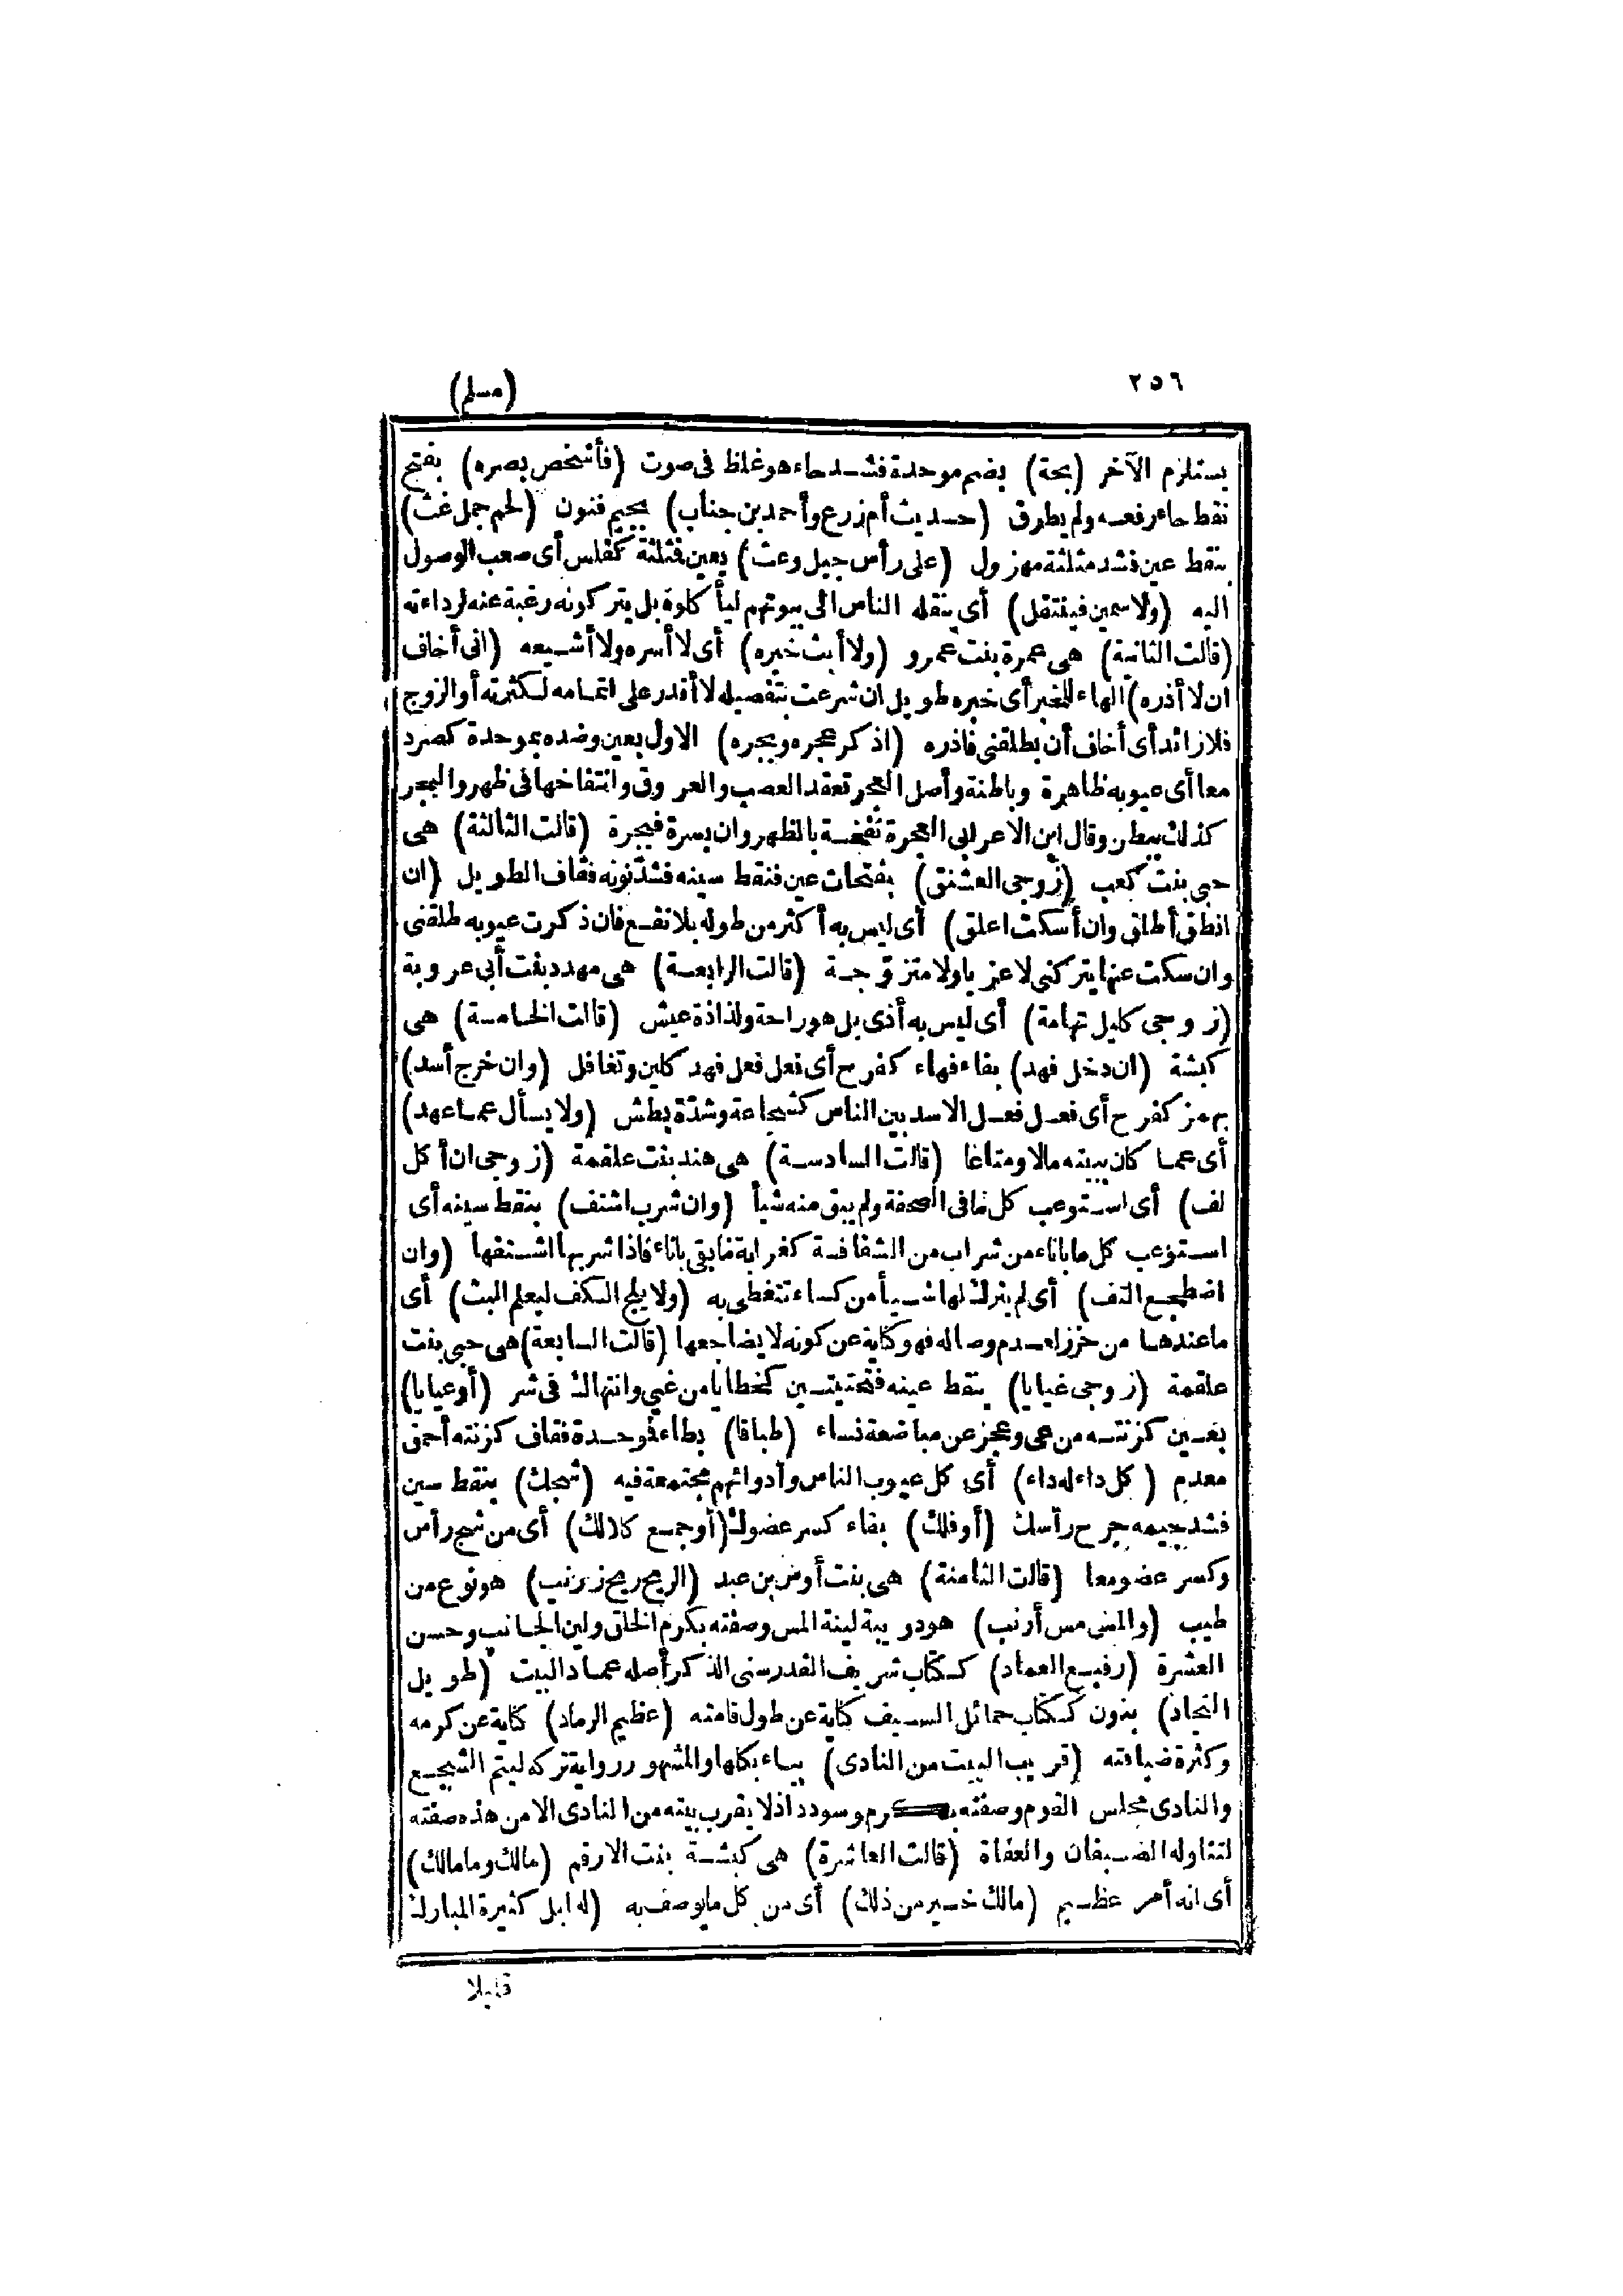 ٢٥٦ (مسلم)
يستلزم الآخر (بحة) بضم موحدة فشد حاء هو غلظ فى صوت (فأشخص بصره) بفتح
نقط حاء رفعه ولم يطرق (حديث أم زرع وأحمد بن جناب) بجيم فنون (لحم جمل غث)
بنقط عين فشد مثلثة مهزول (على رأس جبل وعث) بعين فثلثة كفلس أى صعب الوصول
اليه (ولا سمين فينتقل) أى ينقله الناس الى بيوتهم ليأ كلوه بل يتركونه رغبة عنه لرداءته
(قالت الثانية) هى عمرة بنت عمرو (ولا أبث خبره) أى لا أسره ولا أشيعه (انى أخاف
ان لا أذره) الهاء للخبر أى خبره طويل ان شرعت بتفصيله لا أقدر على اتمامه لكثرته أو الزوج
فلا زائد أى أخاف أن يطلقنى فاذره (اذكر عجره وبجره) الاول بعين وضده بموحدة كصرد
معا أى عيوبه ظاهرة وباطنة وأصل العجر تعقد العصب والعروق وانتفاخها فى ظهر والبجر
كذلك ببطن وقال ابن الاعرابى العجرة نفخة بالظهر وان بسرة فبجرة (قالت الثالثة) هى
حبى بنت كعب (زوجى العشنق) بفتحات عين فنقط سينه فشد نونه فقاف الطويل (ان
انطق أطلق وان أسكت اعلق) أى ليس به أكثر من طوله بلا نفع فان ذكرت عيوبه طلقنى
وان سكت عنها يتركنى لا عزباولا متزوجة (قالت الرابعة) هى مهدد بنت أبى عروبة
(زوجى كليل تهامة) أى ليس به أذى بل هو راحة ولذاذة عيش (قالت الخامسة) هى
كبشة (ان دخل فهد) بفاء فهاء كفرح أى فعل فعل فهد كلين وتغافل (وان خرج أسد)
بهمز كفرح أى فعل فعل الاسد بين الناس كشجاعة وشدة بطش (ولا يسأل عما عهد)
أى عما كان ببيته مالا ومتاعا (قالت السادسة) هى هند بنت علقمة (زوجى ان أكل
لف) أى استوعب كل مافى الصحفة ولم يبق منه شيأ (وان شرب اشتف) بنقط سينه أى
استوعب كل ما باناء من شراب من الشفافة كغرابة مايبقى باناء فاذا شربها اشتفها (وان
اضطجع التف) أى لم يترك لها شيأ من كساء تتغطى به (ولا يلج الكف ليعلم البث) أى
ما عندها من حزن لعدم وصاله فهو كناية عن كونه لا يضاجعها (قالت السابعة) هى حبى بنت
علقمة (زوجى غيايا) بنقط عينه فتحتيتين كخطايا من غى وانهماك فى شر (أو عيايا)
بعين كزنته من عى وعجز عن مباضعة نساء (طباقا) بطاء فوحدة فقاف كزنته أحمق
معدم (كل داء له داء) أى كل عيوب الناس وأدوائهم مجتمعة فيه (شجك) بنقط سين
فشد جيمه جرح رأسك (أو فلك) بفاء كسر عضوك (أو جمع كلا لك) أى من شج رأس
وكسر عضو معا (قالت الثامنة) هى بنت أوس بن عبد (الريح ريح زرنب) هو نوع من
طيب (والمس مس أرنب) هو دويبة لينة المس وصفته بكرم الخلق ولين الجانب وحسن
العشرة (رفيع العماد) ككتاب شريف القدر سنى الذكر أصله عماد البيت (طويل
النجاد) بنون ككتاب حمائل السيف كناية عن طول قامته (عظيم الرماد) كناية عن كرمه
وكثرة ضيافته (قريب البيت من النادى) بياء بكلها والمشهور رواية تركه ليتم التسجيع
والنادى مجلس القوم وصفته بكرم وسودد اذ لا يقرب بيته من النادى الا من هذه صفته
لتتناوله الضيفان والعفاة (قالت العاشرة) هى كبشة بنت الارقم (مالك وما مالك)
أى انه أمر عظيم (مالك خير من ذلك) أى من كل ما يوصف به (له ابل كثيرة المبارك
قليلا